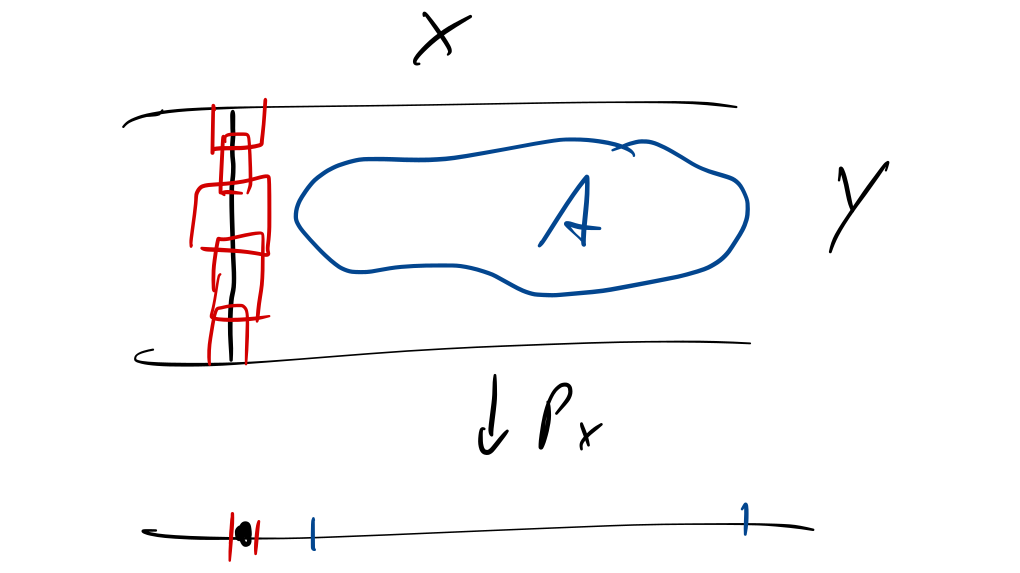 X
A
Y
↓ Px